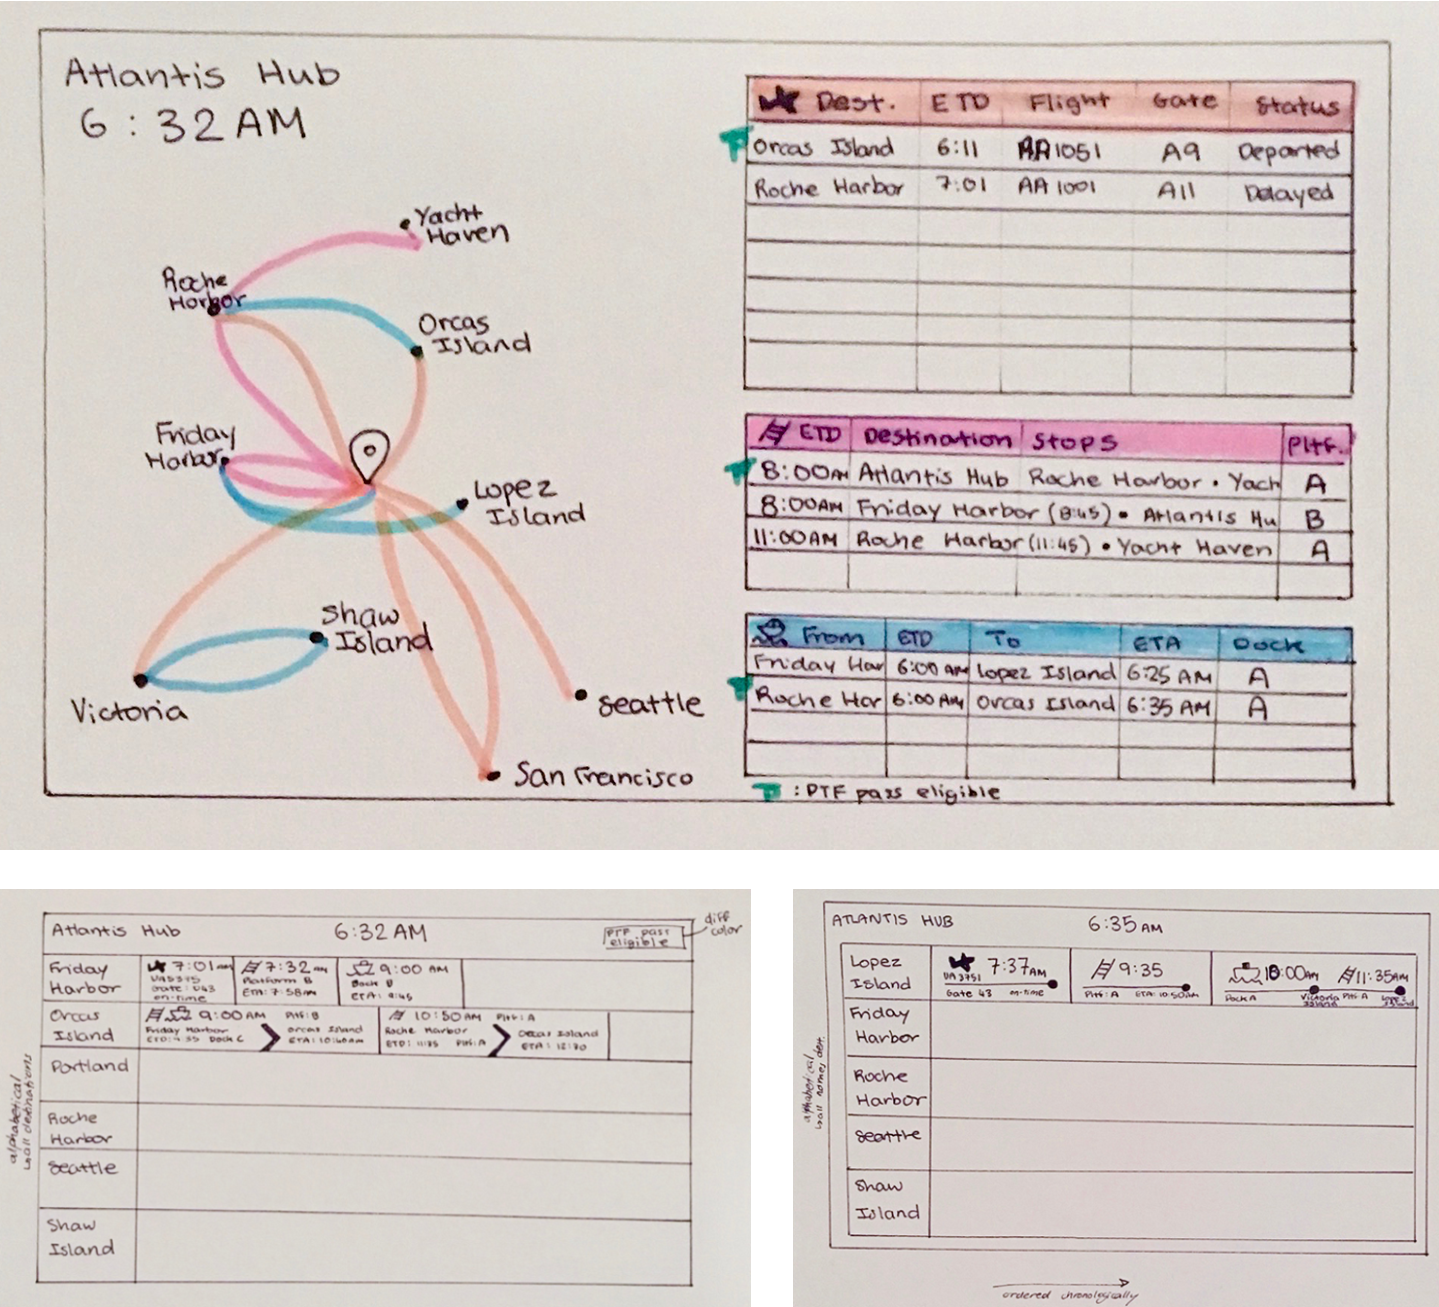 Atlantis Hub
6:32AM
Yacht
Haven
Roche
Harbor
Orcas
Island
Friday
Harbor
Lopez
Island
Shaw
Island
Victoria
Seattle
San Francisco
Dest. ETD Flight Gate Status
Orcas Island 6:11 AA1051 A9 Departed
Roche Harbor 7:01 AA1001 A11 Delayed
ETD Destination Stops Pltf.
8:00AM Atlantis Hub Roche Harbor • Yach A
8:00AM Friday Harbor (8:45) • Atlantis Hu B
11:00AM Roche Harbor (11:45) • Yacht Haven A
From ETD To ETA Dock
Friday Har 6:00AM Lopez Island 6:25 AM A
Roche Har 6:00AM Orcas Island 6:35 AM A
: PTF pass eligible
Atlantis Hub 6:32AM
PTF pass
eligible
diff
color
Friday
Harbor
7:01am
Gate: U43
on-time
7:32am
Platform B
ETA: 7:58am
9:00 AM
ETA: 9:45
Orcas
Island
9:00AM Pltf: B
Friday Harbor
Dock C
Orcas Island
ETA: 10:40AM
10:50AM Pltf: A
Roche Harbor
ETD: 11:35 Pltf: A
Orcas Island
ETA: 12:20
Portland
Roche
Harbor
Seattle
Shaw
Island
alphabetical
w/all destinations
ATLANTIS HUB 6:35AM
Lopez
Island
7:37AM
UA3751
Gate 43 on-time
9:35
Pltf: A ETA: 10:50am
10:00AM
Dock A
Victoria
Island
11:35AM
Pltf: A
Lopez
Island
Friday
Harbor
Roche
Harbor
Seattle
Shaw
Island
alphabetical
ordered chronologically